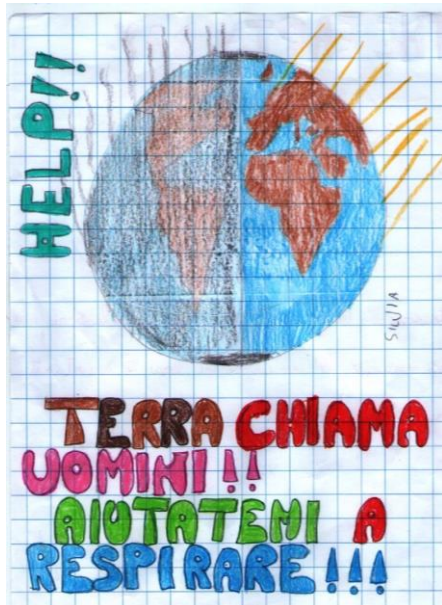 HELP!!
SILVIA
TERRA CHIAMA
UOMINI!!
AIUTATEMI A
RESPIRARE!!!